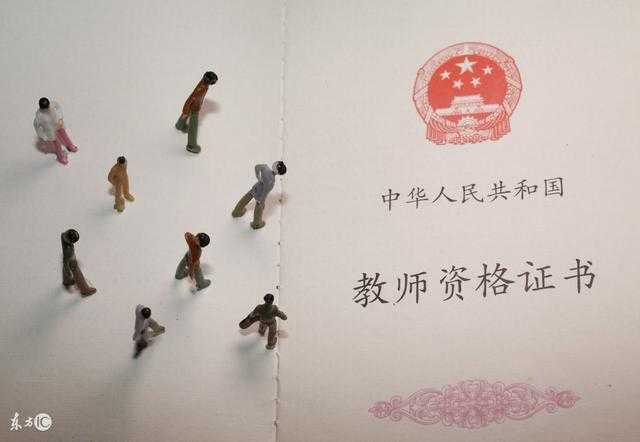 中华人民共和国
教师资格证书
东方IC